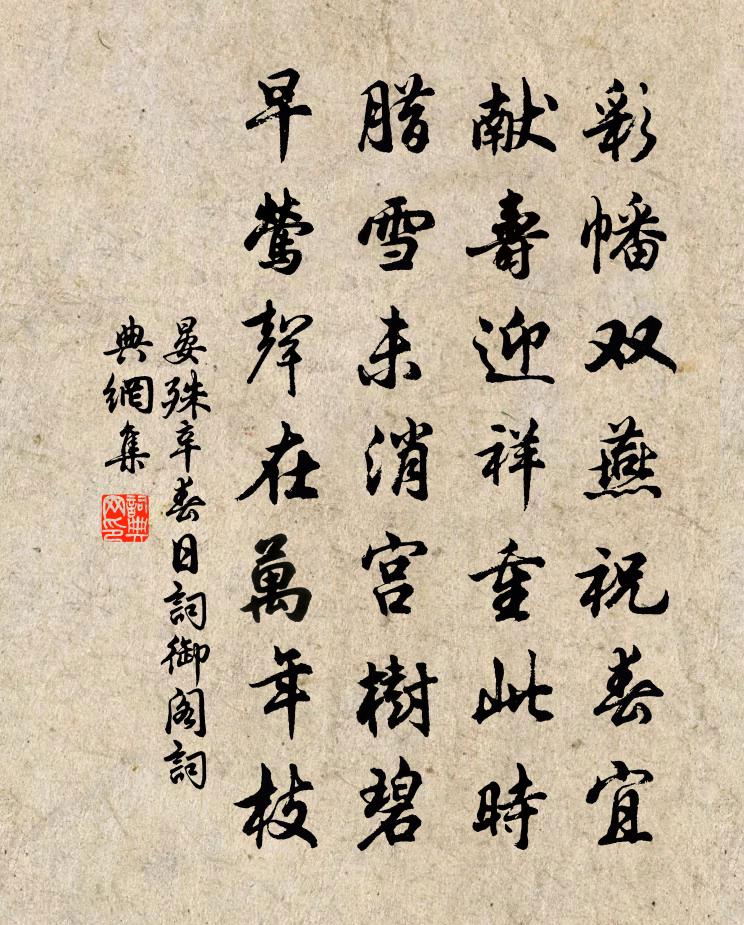 彩幡双燕祝春宜
献壽迎祥重此時
腊雪未消宫樹碧
早鶯聲在萬年枝
晏殊辛春日詞御阁詞
典網集
詞典网印